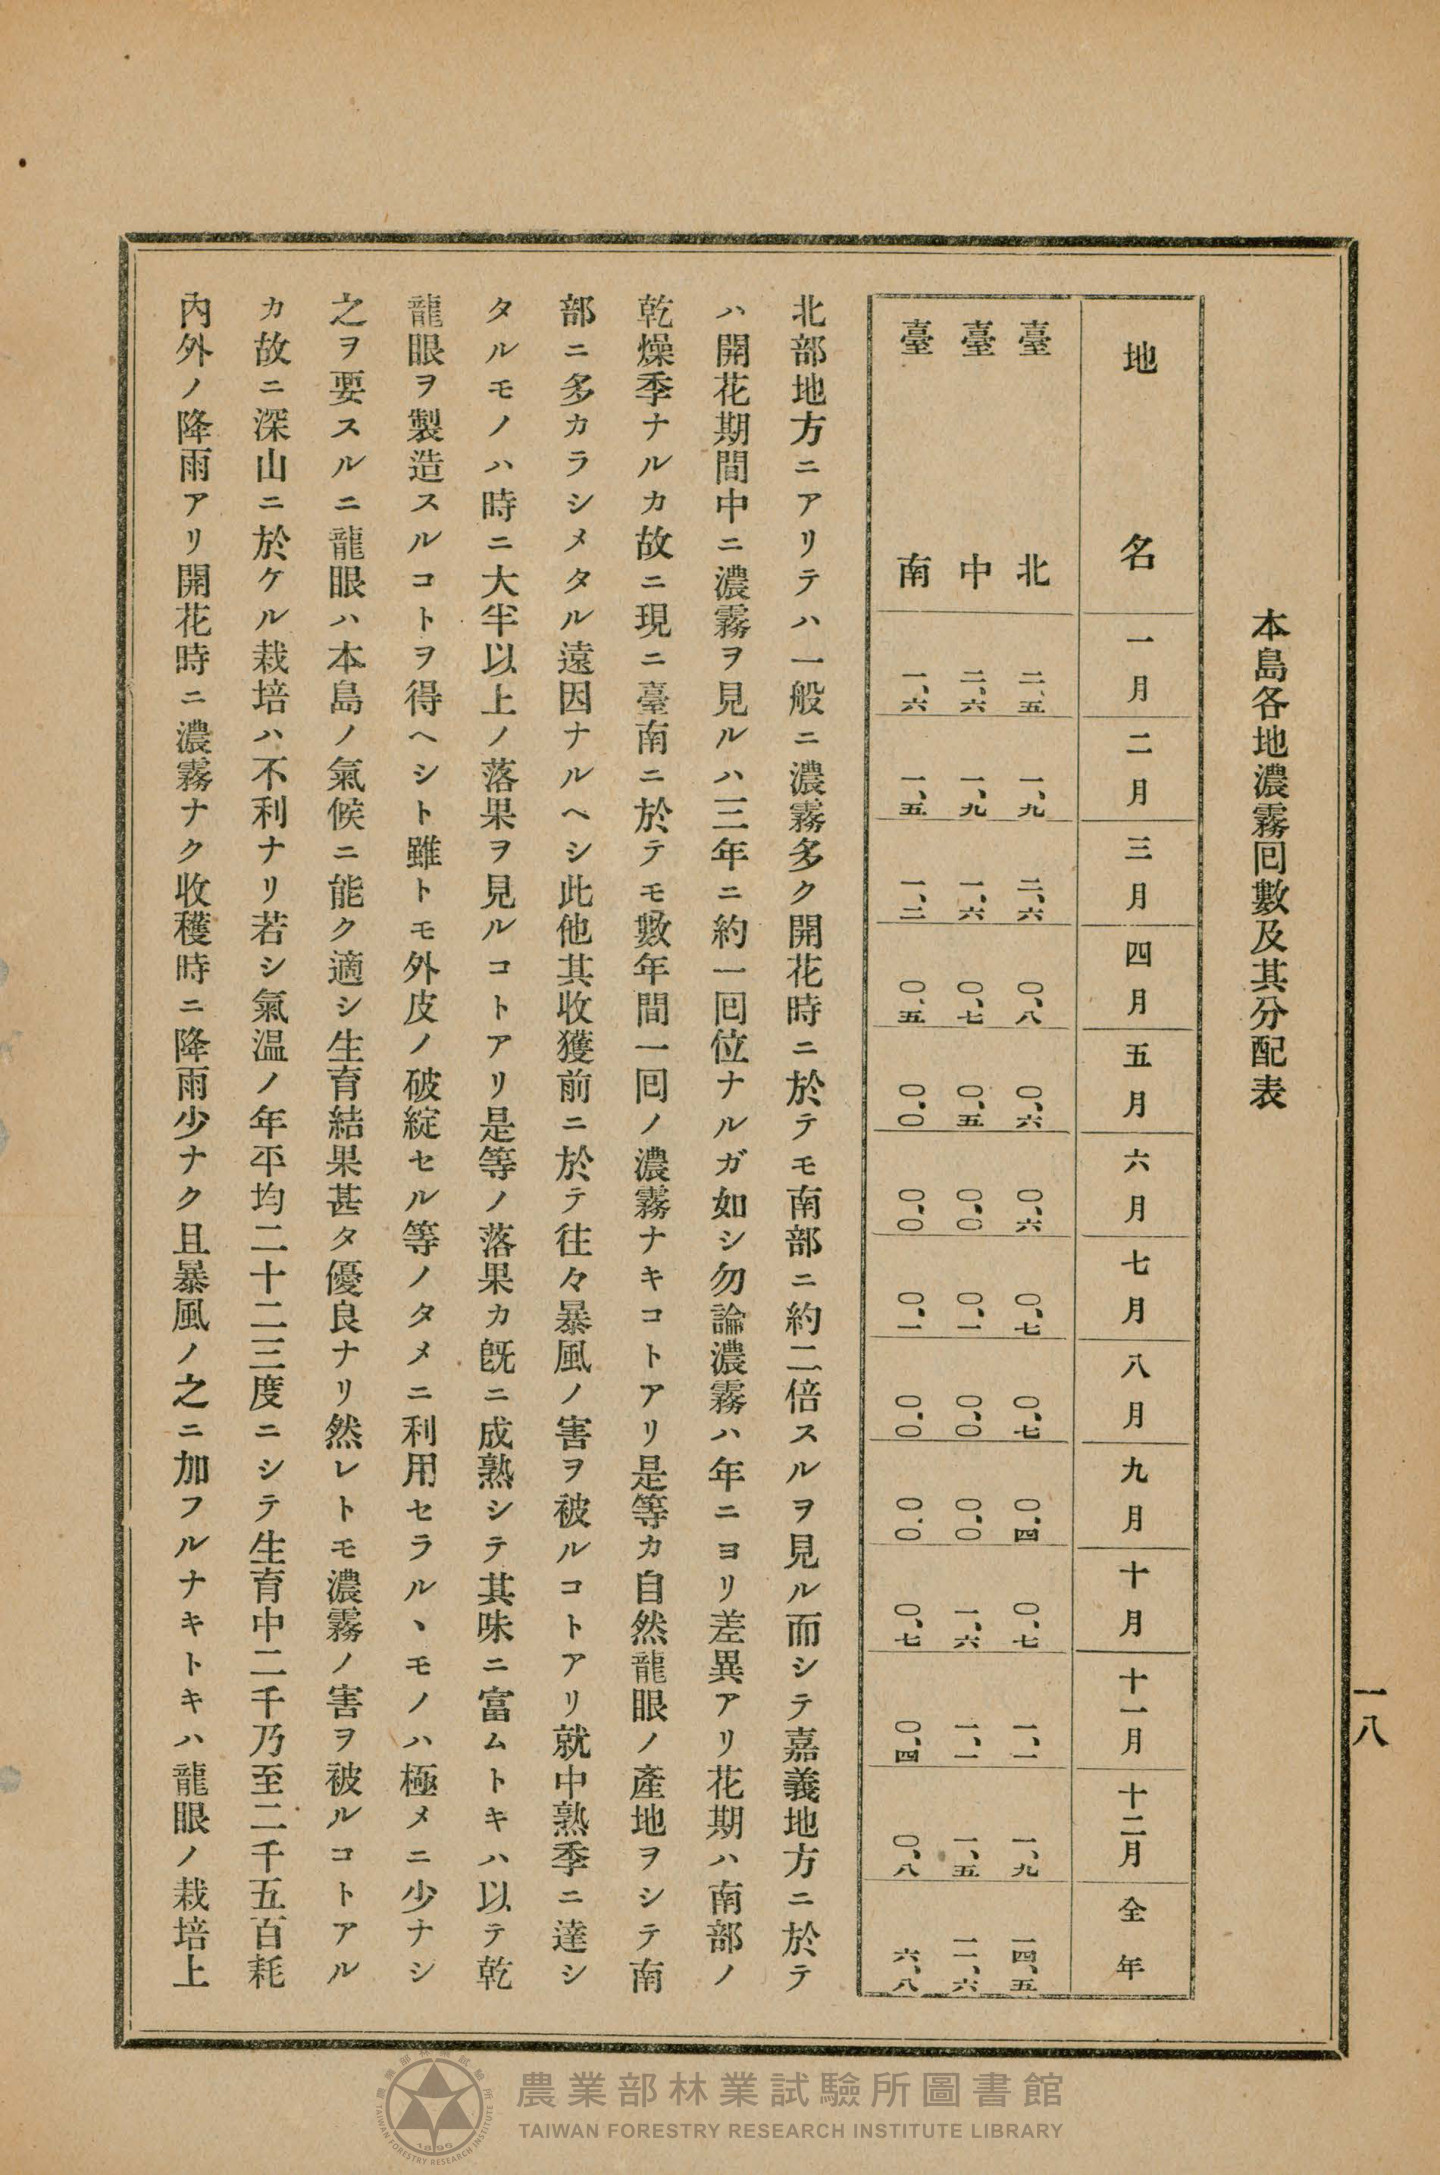 一八
本島各地濃霧囘數及其分配表
地名 一月 二月 三月 四月 五月 六月 七月 八月 九月 十月 十一月 十二月 全年
臺北 二、五 一、九 二、六 〇、八 〇、六 〇、六 〇、七 〇、七 〇、四 〇、七 一、一 一、九 一四、五
臺中 二、六 一、九 一、六 〇、七 〇、五 〇、〇 〇、一 〇、〇 〇、〇 一、六 一、一 一、五 一一、六
臺南 一、六 一、五 一、二 〇、五 〇、〇 〇、〇 〇、一 〇、〇 〇、〇 〇、七 〇、四 〇、八 六、八
北部地方ニアリテハ一般ニ濃霧多ク開花時ニ於テモ南部ニ約二倍スルヲ見ル而シテ嘉義地方ニ於テ
ハ開花期間中ニ濃霧ヲ見ルハ三年ニ約一囘位ナルガ如シ勿論濃霧ハ年ニヨリ差異アリ花期ハ南部ノ
乾燥季ナルカ故ニ現ニ臺南ニ於テモ數年間一囘ノ濃霧ナキコトアリ是等カ自然龍眼ノ產地ヲシテ南
部ニ多カラシメタル遠因ナルヘシ此他其收獲前ニ於テ往々暴風ノ害ヲ被ルコトアリ就中熟季ニ達シ
タルモノハ時ニ大半以上ノ落果ヲ見ルコトアリ是等ノ落果カ旣ニ成熟シテ其味ニ富ムトキハ以テ乾
龍眼ヲ製造スルコトヲ得ヘシト雖トモ外皮ノ破綻セル等ノタメニ利用セラルヽモノハ極メニ少ナシ
之ヲ要スルニ龍眼ハ本島ノ氣候ニ能ク適シ生育結果甚タ優良ナリ然レトモ濃霧ノ害ヲ被ルコトアル
カ故ニ深山ニ於ケル栽培ハ不利ナリ若シ氣溫ノ年平均二十二三度ニシテ生育中二千乃至二千五百耗
內外ノ降雨アリ開花時ニ濃霧ナク收穫時ニ降雨少ナク且暴風ノ之ニ加フルナキトキハ龍眼ノ栽培上
農業部林業試驗所圖書館
TAIWAN FORESTRY RESEARCH INSTITUTE LIBRARY
農業部林業試驗所
TAIWAN FORESTRY RESEARCH INSTITUTE
1896